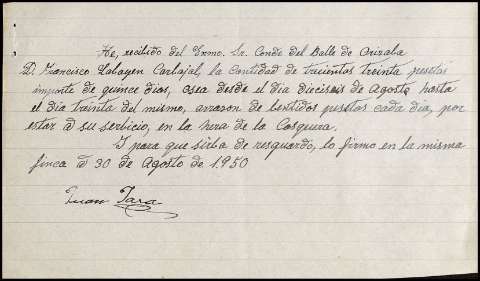 He, recibido del Exmo. Sr. Conde del Balle de Orizaba
D. Francisco Labayen Carbajal, la cantidad de trecientas treinta pesetas
importe de quince dias, osea desde el dia dieciseis de Agosto, hasta
el dia treinta del mismo, arrason de bentidos pesetas cada dia, por
estar a su serbicio, en la hera de la Casquera.
I para que sirba de resguardo, lo firmo en la misma
finca a 30 de Agosto de 1.950
Juan Jara